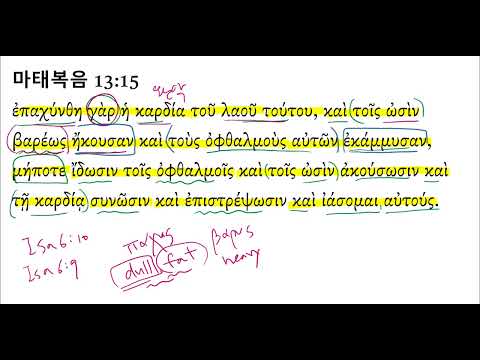 마태복음 13:15
ἐπαχύνθη γὰρ ἡ καρδία τοῦ λαοῦ τούτου, καὶ τοῖς ὠσὶν
βαρέως ἤκουσαν καὶ τοὺς ὀφθαλμοὺς αὐτῶν ἐκάμμυσαν,
μήποτε ἴδωσιν τοῖς ὀφθαλμοῖς καὶ τοῖς ὠσὶν ἀκούσωσιν καὶ
τῇ καρδίᾳ συνῶσιν καὶ ἐπιστρέψωσιν καὶ ἰάσομαι αὐτούς.
Isa 6:10 παχυς βαρυς
Isa 6:9 dull fat heavy